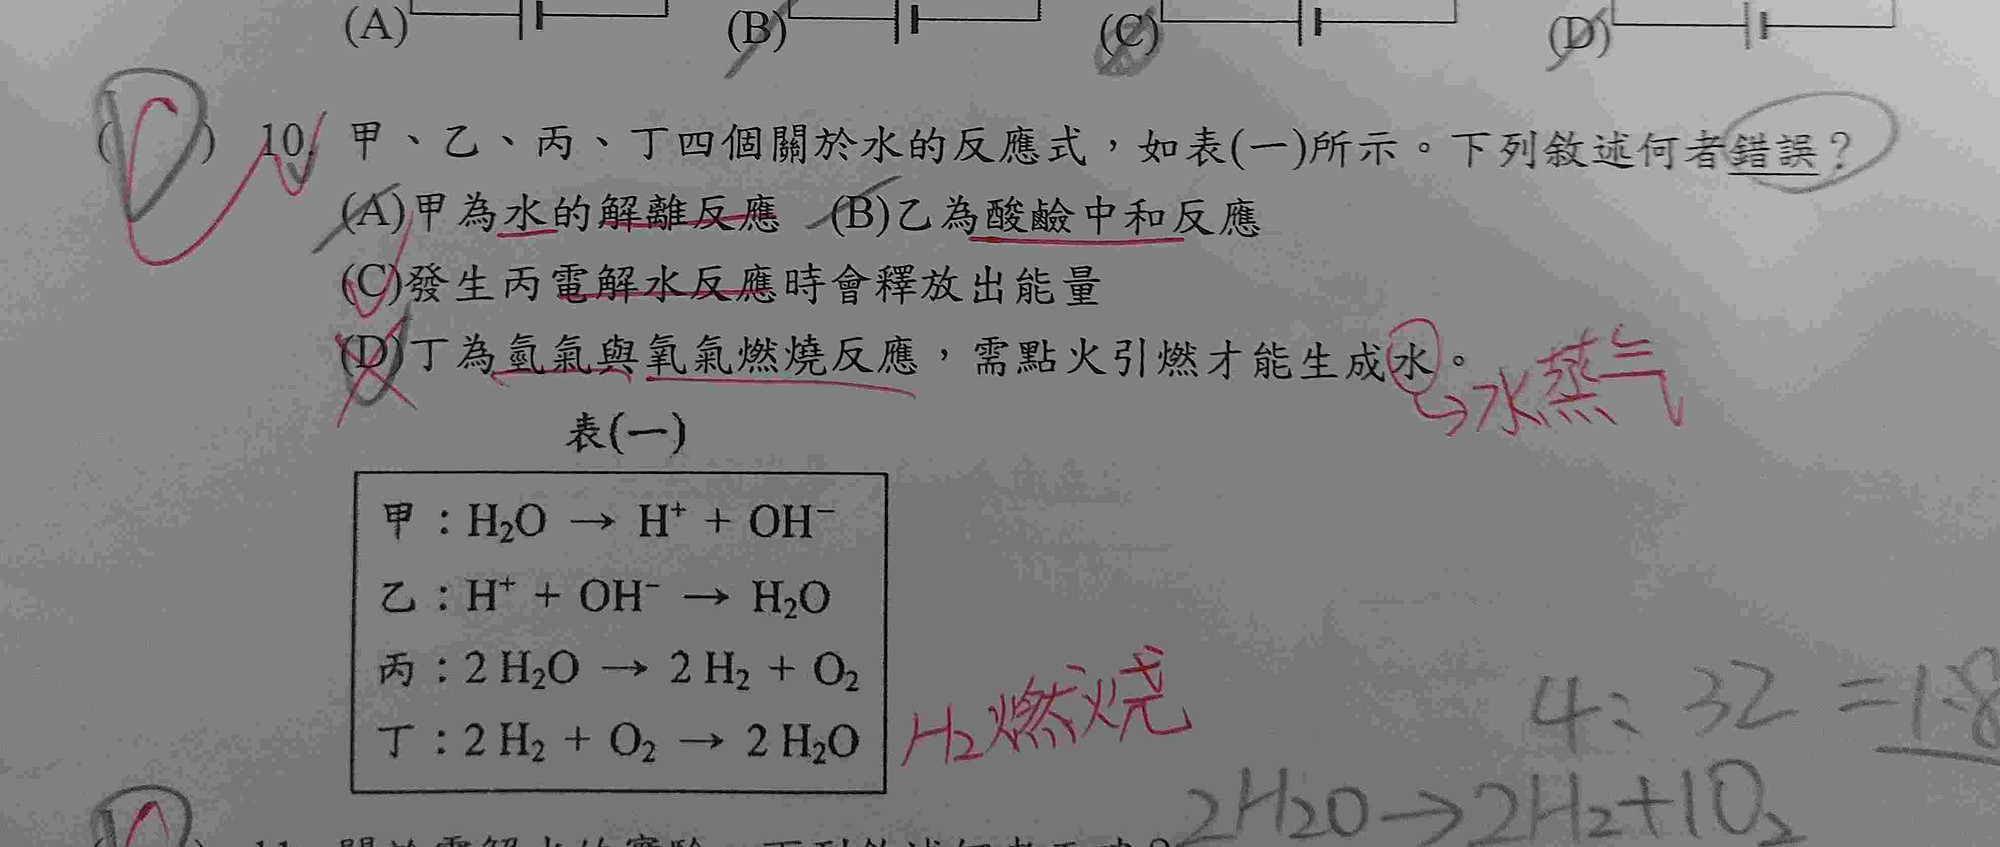 (A) (B) (C) (D)
(C) 10. 甲、乙、丙、丁四個關於水的反應式，如表(一)所示。下列敘述何者錯誤？
(A)甲為水的解離反應 (B)乙為酸鹼中和反應
(C)發生丙電解水反應時會釋放出能量
(D)丁為氫氣與氧氣燃燒反應，需點火引燃才能生成水。
水蒸气
表(一)
甲：H₂O → H⁺ + OH⁻
乙：H⁺ + OH⁻ → H₂O
丙：2 H₂O → 2 H₂ + O₂
丁：2 H₂ + O₂ → 2 H₂O
H₂燃烧
4:32=1:8
2H₂O→2H₂+1O₂